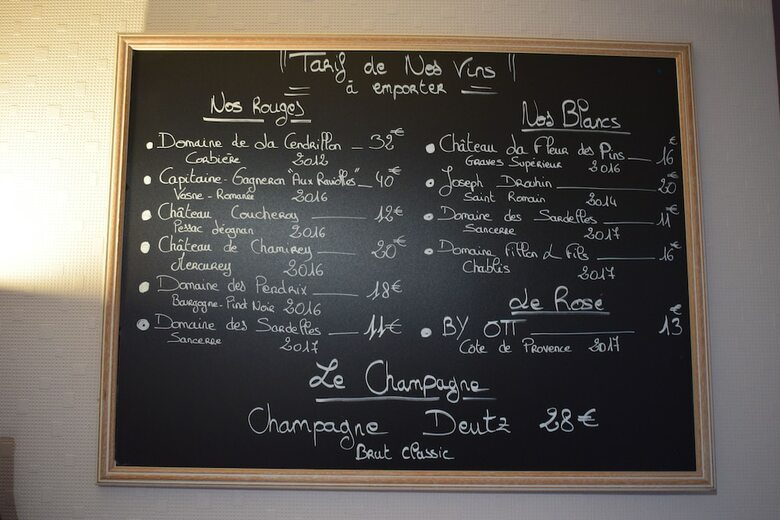 "Tarif de Nos Vins"
à emporter
Nos Rouges
Domaine de La Cendrillon — 32€
Corbière 2012
Capitaine-Gagneron "Aux Raviolles" — 40€
Vosne-Romanée 2016
Château Coucheroy — 12€
Pessac Léognan 2016
Château de Chamirey — 20€
Mercurey 2016
Domaine des Perdrix — 18€
Bourgogne-Pinot Noir 2016
Domaine des Sardelles — 11€
Sancerre 2017
Nos Blancs
Château La Fleur des Pins — 16€
Graves Supérieur 2016
Joseph Drouhin — 20€
Saint Romain 2014
Domaine des Sardelles — 11€
Sancerre 2017
Domaine Fillon & Fils — 16€
Chablis 2017
Le Rosé
BY OTT — 13€
Côte de Provence 2017
Le Champagne
Champagne Deutz 28€
Brut Classic